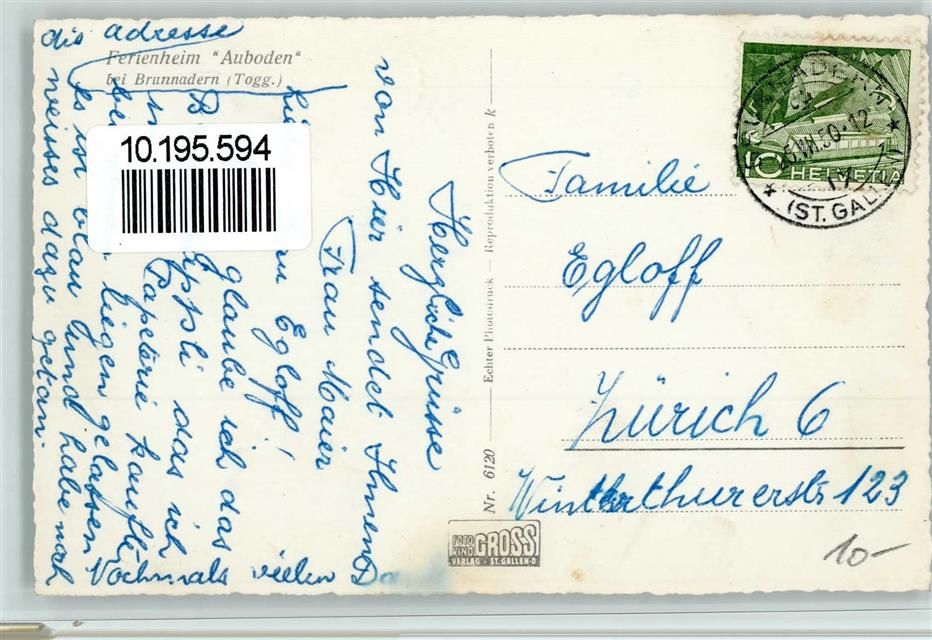 die adresse
Ferienheim "Auboden"
bei Brunnadern (Togg.)
10.195.594
Herzliche Grüsse
von Hier sendet Ihnen
Frau Maier
Egloff!
glaube ich das
das ich
Papeterie kaufte
liegen gelassen
Es ist blau und habe noch
weisses dazu getan.
Nochmals vielen
Nr. 6120 — Echter Photodruck — Reproduktion verboten k
FOTO KINO GROSS
VERLAG · ST. GALLEN-O
10 HELVETIA
50-12
(ST. GALLEN)
Familie
Egloff
Zürich 6
Winterthurerstr 123
10-